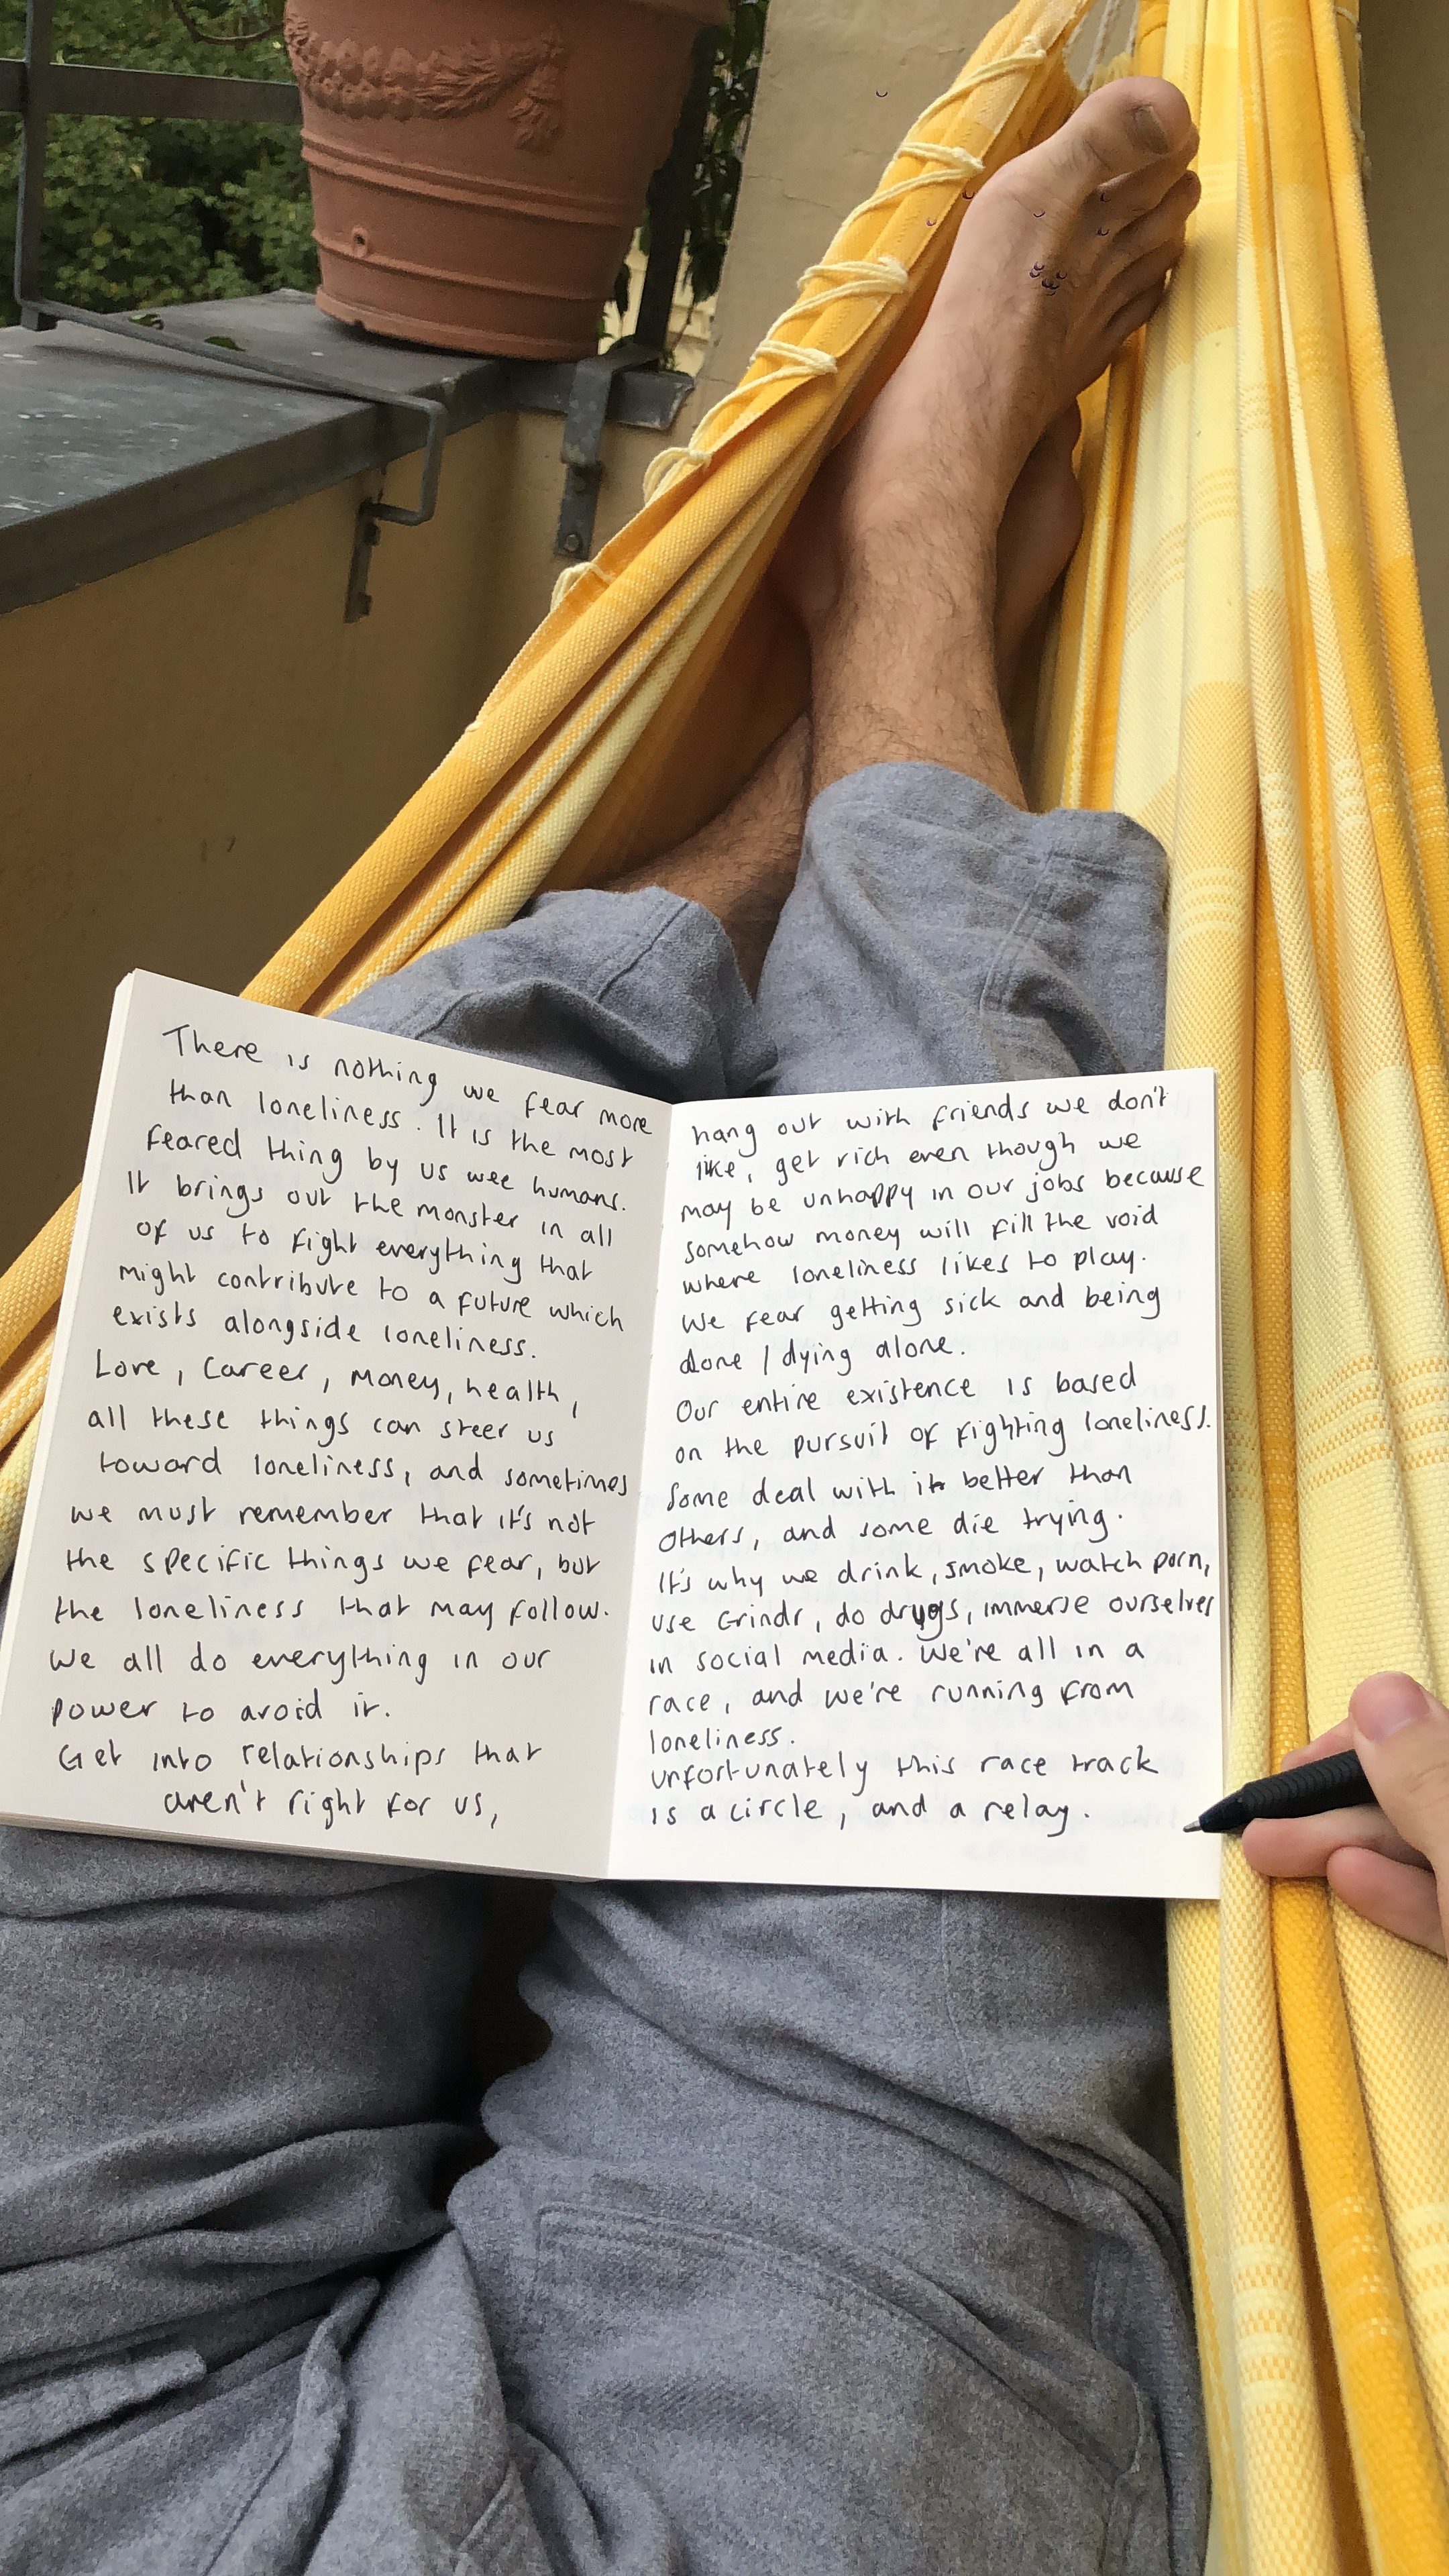 There is nothing we fear more
than loneliness. It is the most
feared thing by us wee humans.
It brings out the monster in all
of us to fight everything that
might contribute to a future which
exists alongside loneliness.
Love, Career, Money, health,
all these things can steer us
toward loneliness, and sometimes
we must remember that it's not
the specific things we fear, but
the loneliness that may follow.
We all do everything in our
power to avoid it.
Get into relationships that
aren't right for us,
hang out with friends we don't
like, get rich even though we
may be unhappy in our jobs because
somehow money will fill the void
where loneliness likes to play.
We fear getting sick and being
alone / dying alone.
Our entire existence is based
on the pursuit of fighting loneliness.
Some deal with it better than
others, and some die trying.
It's why we drink, smoke, watch porn,
use Grindr, do drugs, immerse ourselves
in social media. We're all in a
race, and we're running from
loneliness.
Unfortunately this race track
is a circle, and a relay.